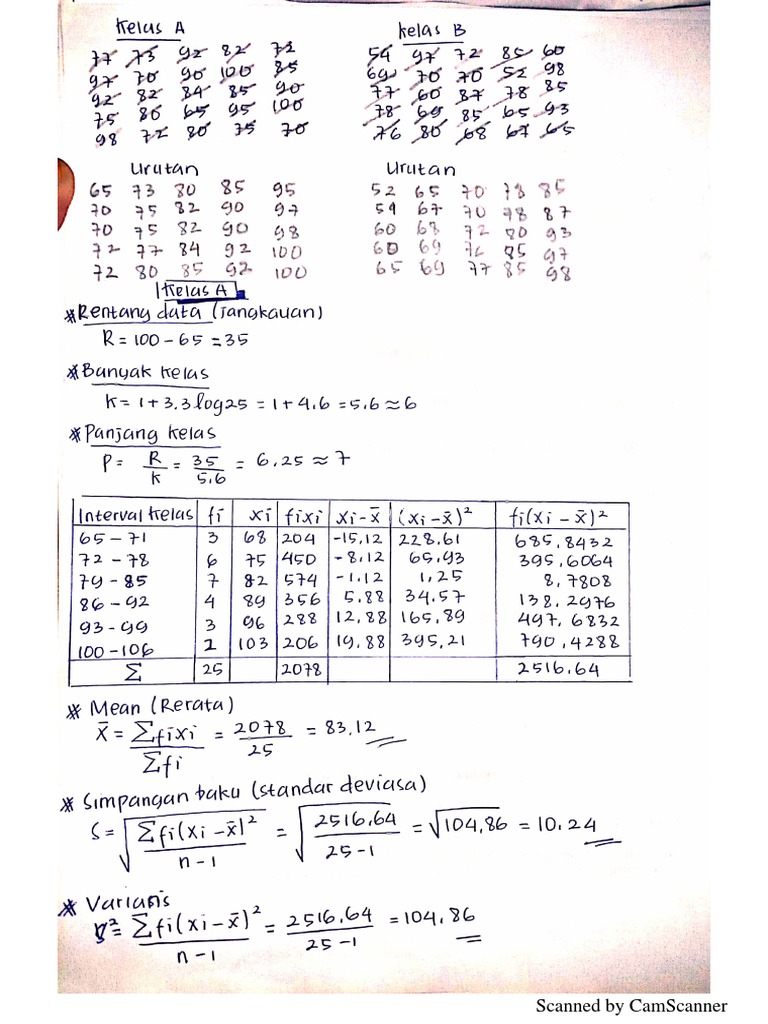 Kelas A
77 73 92 82 72
97 70 90 100 85
92 82 84 85 90
75 80 65 95 100
98 72 80 75 70
kelas B
54 97 72 85 60
69 70 70 52 98
77 60 87 78 85
78 69 85 65 93
76 80 68 67 65
Urutan
65 73 80 85 95
70 75 82 90 97
70 75 82 90 98
72 77 84 92 100
72 80 85 92 100
Urutan
52 65 70 78 85
54 67 70 78 87
60 68 72 80 93
60 69 76 85 97
65 69 77 85 98
Kelas A
* Rentang data (jangkauan)
R = 100 - 65 = 35
* Banyak kelas
K = 1 + 3.3 log 25 = 1 + 4.6 = 5.6 ≈ 6
* Panjang kelas
P = R/K = 35/5.6 = 6.25 ≈ 7
Interval kelas fi xi fixi xi-x̄ (xi-x̄)² fi(xi - x̄)²
65 - 71 3 68 204 -15,12 228.61 685,8432
72 - 78 6 75 450 -8,12 65,93 395,6064
79 - 85 7 82 574 -1.12 1,25 8,7808
86 - 92 4 89 356 5.88 34.57 138,2976
93 - 99 3 96 288 12,88 165,89 497,6832
100 - 106 2 103 206 19,88 395,21 790,4288
Σ 25 2078 2516,64
* Mean (Rerata)
x̄ = Σfixi/Σfi = 2078/25 = 83,12
* Simpangan baku (standar deviasa)
S = √(Σfi(xi-x̄)²/n-1) = √(2516,64/25-1) = √104,86 = 10.24
* Varians
S² = Σfi(xi-x̄)²/n-1 = 2516,64/25-1 = 104,86
Scanned by CamScanner